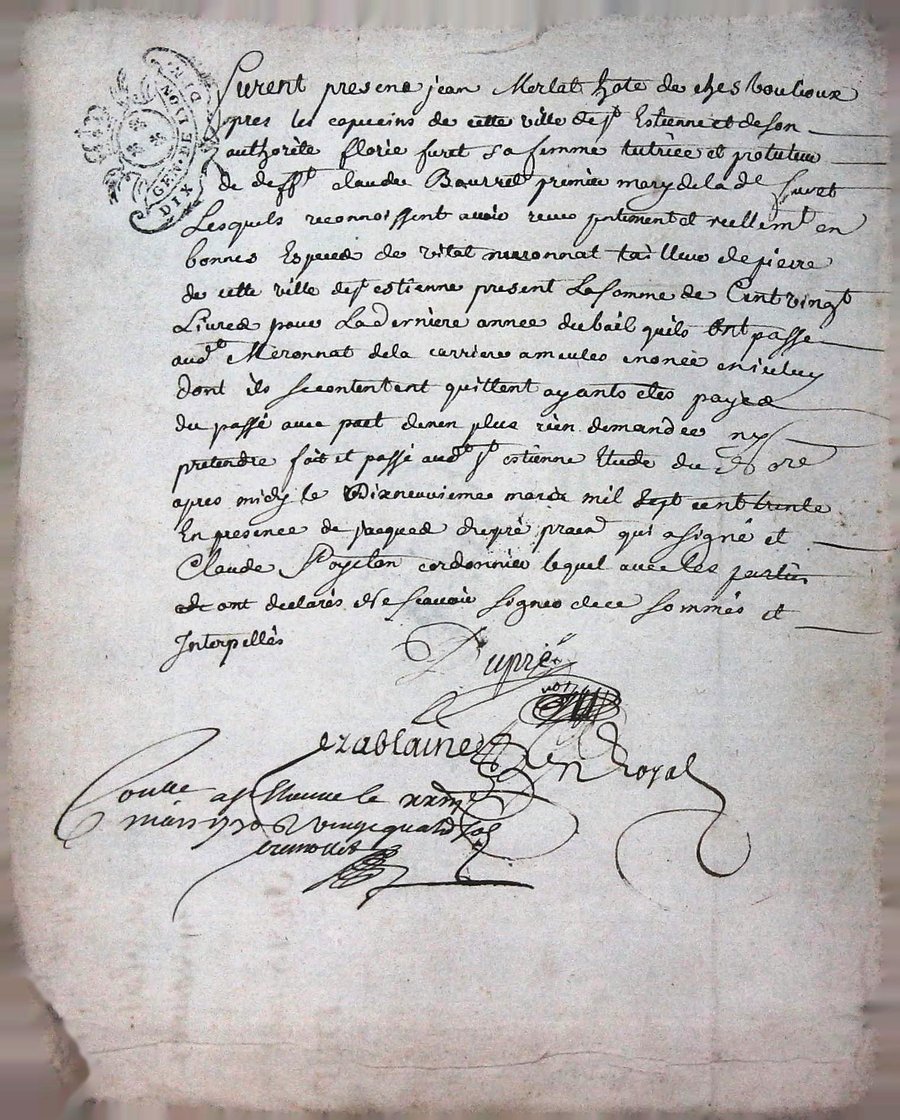 GEN. DE LION
DIX DEN.
Furent presens jean Merlat hote de ches
pres les capucins de cette ville de st Estienne et de son
authorité florie furet sa femme tutrice et protuteur
de defft claude Bourret premier mary de lad. furet
Lesquels reconnoissent avoir receu presentement et reellemt en
bonnes Especes de vital meronnat tailleur de pierre
de cette ville de st estienne present La somme de Cent vingt
Livres pour La derniere année du bail quils ont passé
audt Meronnat de la carriere a meules enoncé en iceluy
dont ils se contentent quittent ayants etes payes
du passé avec pact de nen plus rien demander ny
pretendre fait et passé audt st estienne Etude du nore
apres midy le Dixneuvieme mars mil sept cent trente
En presence de jacques dupré pratn qui a signé et
Claude Poyeton cordonnier lequel avec les parties
ont declarés Ne scavoir signer de ce sommés et
Interpellés
Dupré
ezablaine Nre Royal
Conlle a st Etienne le xxiii
mars 1730 R vingt quatre sols